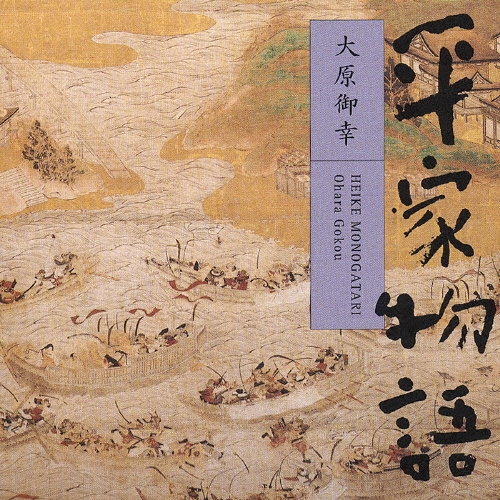 平家物語
大原御幸
HEIKE MONOGATARI
Ohara Gokou